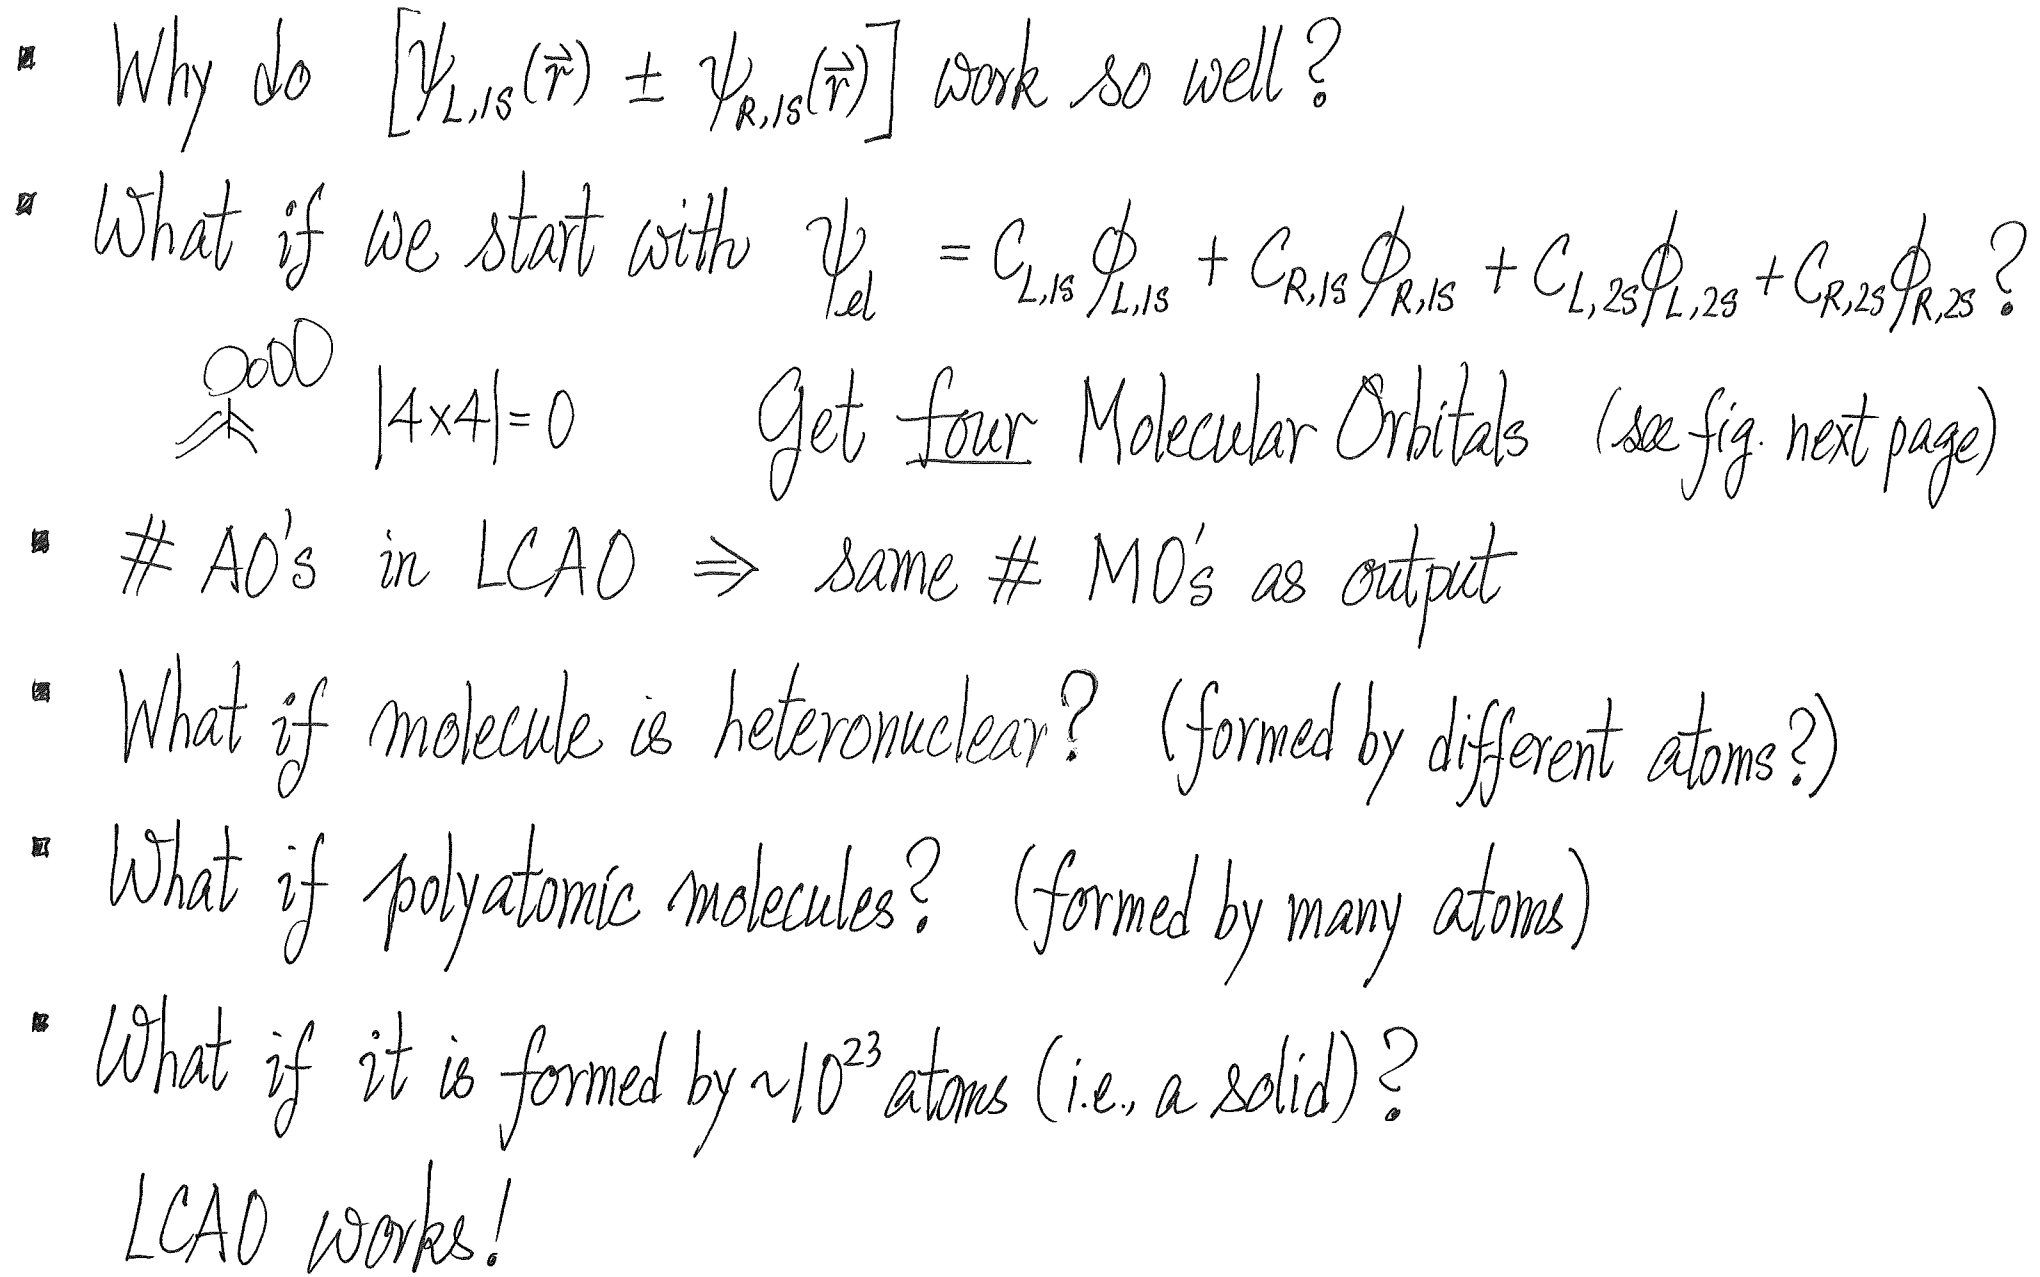 ▪ Why do [ψ_L,1s(r⃗) ± ψ_R,1s(r⃗)] work so well?
▪ What if we start with ψ_el = C_L,1s ϕ_L,1s + C_R,1s ϕ_R,1s + C_L,2s ϕ_L,2s + C_R,2s ϕ_R,2s ?
|4x4| = 0 Get four Molecular Orbitals (see fig. next page)
▪ # AO's in LCAO ⇒ same # MO's as output
▪ What if molecule is heteronuclear? (formed by different atoms?)
▪ What if polyatomic molecules? (formed by many atoms)
▪ What if it is formed by ~10²³ atoms (i.e., a solid)?
LCAO works!